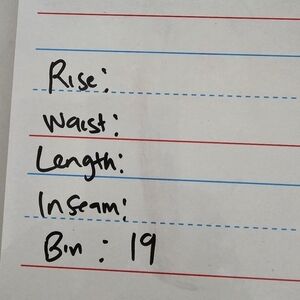 Rise:
Waist:
Length:
Inseam:
Bin : 19